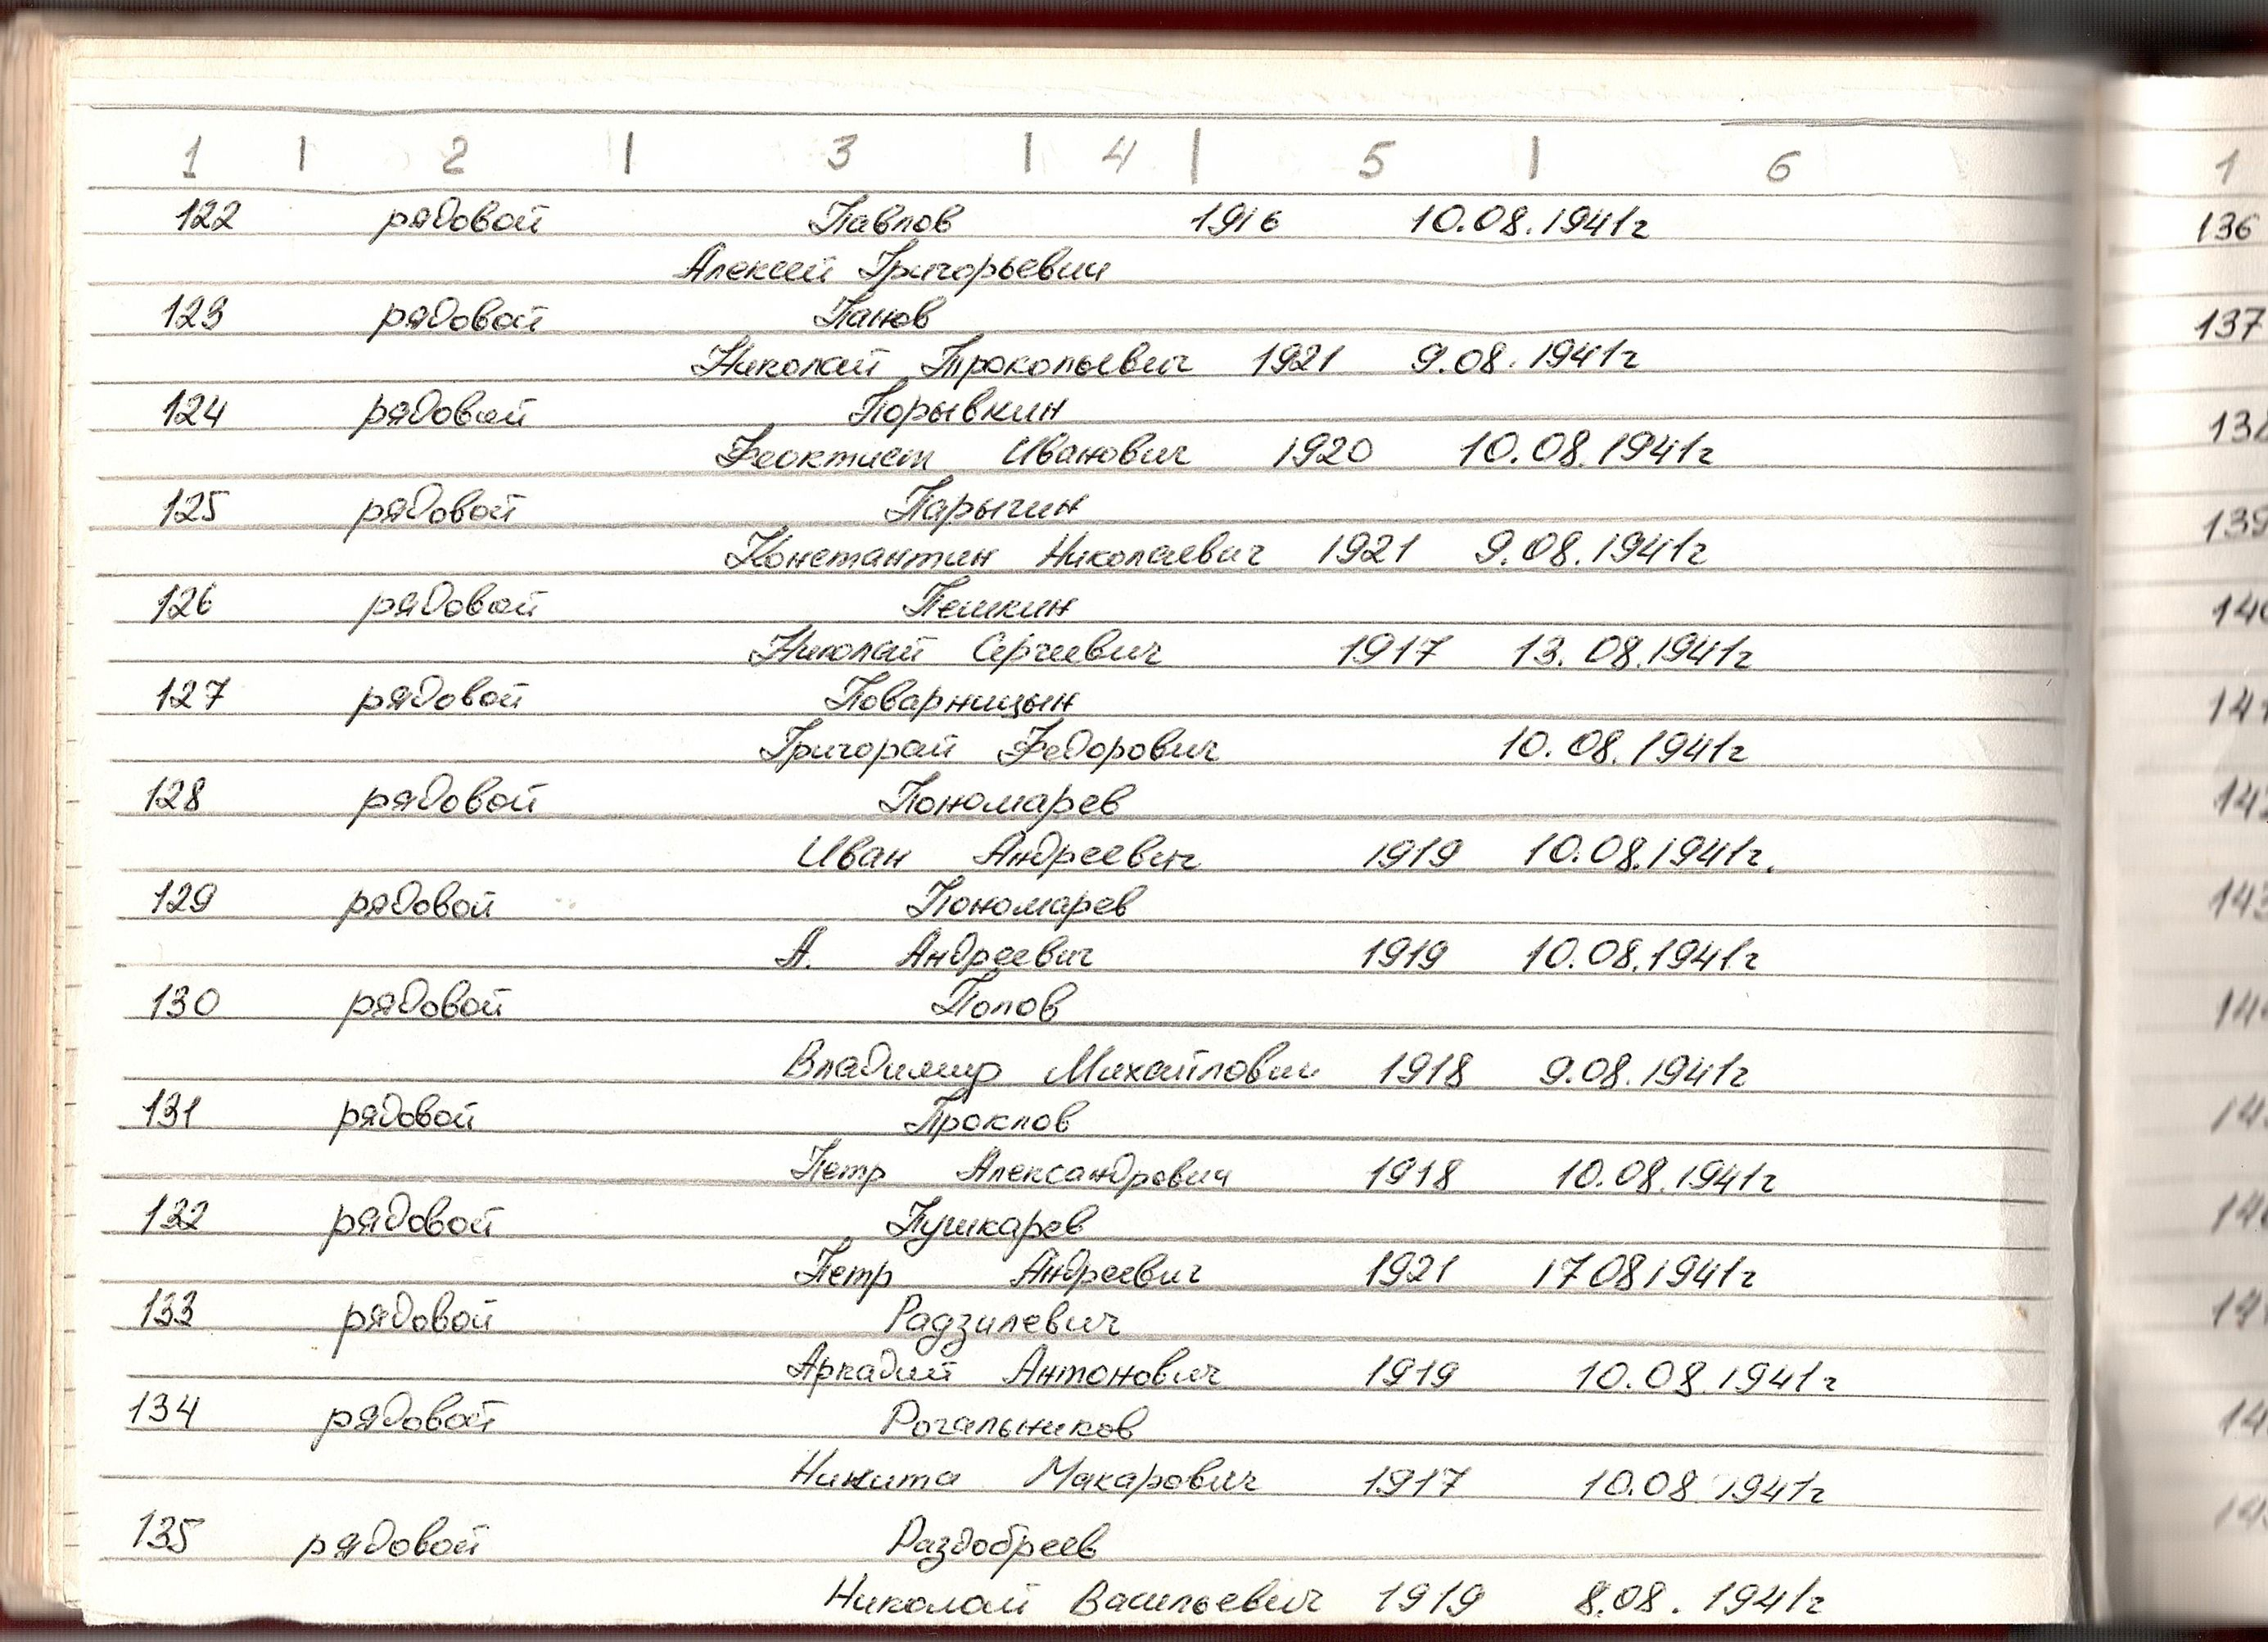 1 | 2 | 3 | 4 | 5 | 6
122 рядовой Павлов 1916 10.08.1941г
Алексей Григорьевич
123 рядовой Панов
Николай Прокопьевич 1921 9.08.1941г
124 рядовой Порывкин
Феоктист Иванович 1920 10.08.1941г
125 рядовой Парыгин
Константин Николаевич 1921 9.08.1941г
126 рядовой Пешкин
Николай Сергеевич 1917 13.08.1941г
127 рядовой Поварницын
Григорий Федорович 10.08.1941г
128 рядовой Пономарев
Иван Андреевич 1919 10.08.1941г.
129 рядовой Пономарев
А. Андреевич 1919 10.08.1941г
130 рядовой Попов
Владимир Михайлович 1918 9.08.1941г
131 рядовой Проклов
Петр Александрович 1918 10.08.1941г
132 рядовой Пушкарев
Петр Андреевич 1921 17081941г
133 рядовой Радзилевич
Аркадий Антонович 1919 10.08.1941г
134 рядовой Рогальников
Никита Макарович 1917 10.08.1941г
135 рядовой Раздобреев
Николай Васильевич 1919 8.08.1941г
1
136
137
139